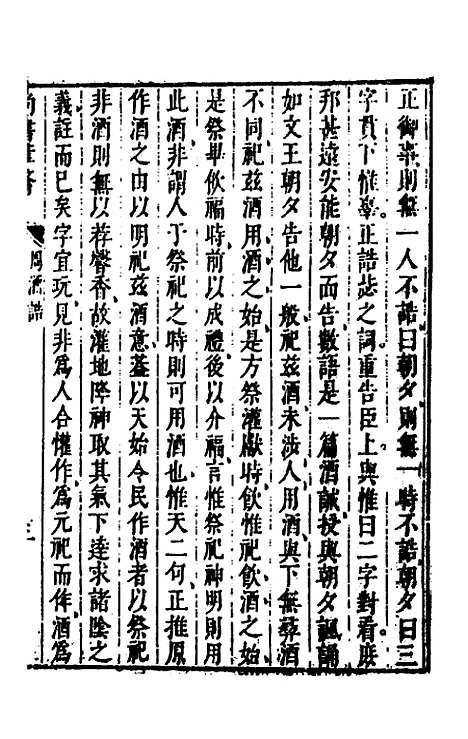 正御事則無一人不誥曰朝夕則無一時不誥朝夕曰三
字貫下惟辜正誥毖之詞重告臣上與惟曰二字對看庶
邦甚遠安能朝夕面告數語是一篇酒誡授與朝夕諷誦
如文王朝夕告他一般祀茲酒未涉人用酒與下無彝酒
不同祀茲酒用酒之始是方祭灌獻時飲惟祀飲酒之始
是祭畢飲福時前以成禮後以介福言惟祭祀神明則用
此酒非謂人于祭祀之時則可用酒也惟天二句正推原
作酒之由以明祀茲酒意蓋以天始令民作酒者以祭祀
非酒則無以荐馨香故灌地降神取其氣下達求諸陰之
義註而已矣字宜玩見非為人合懽作為元祀而作酒為
尚書 周酒誥 三